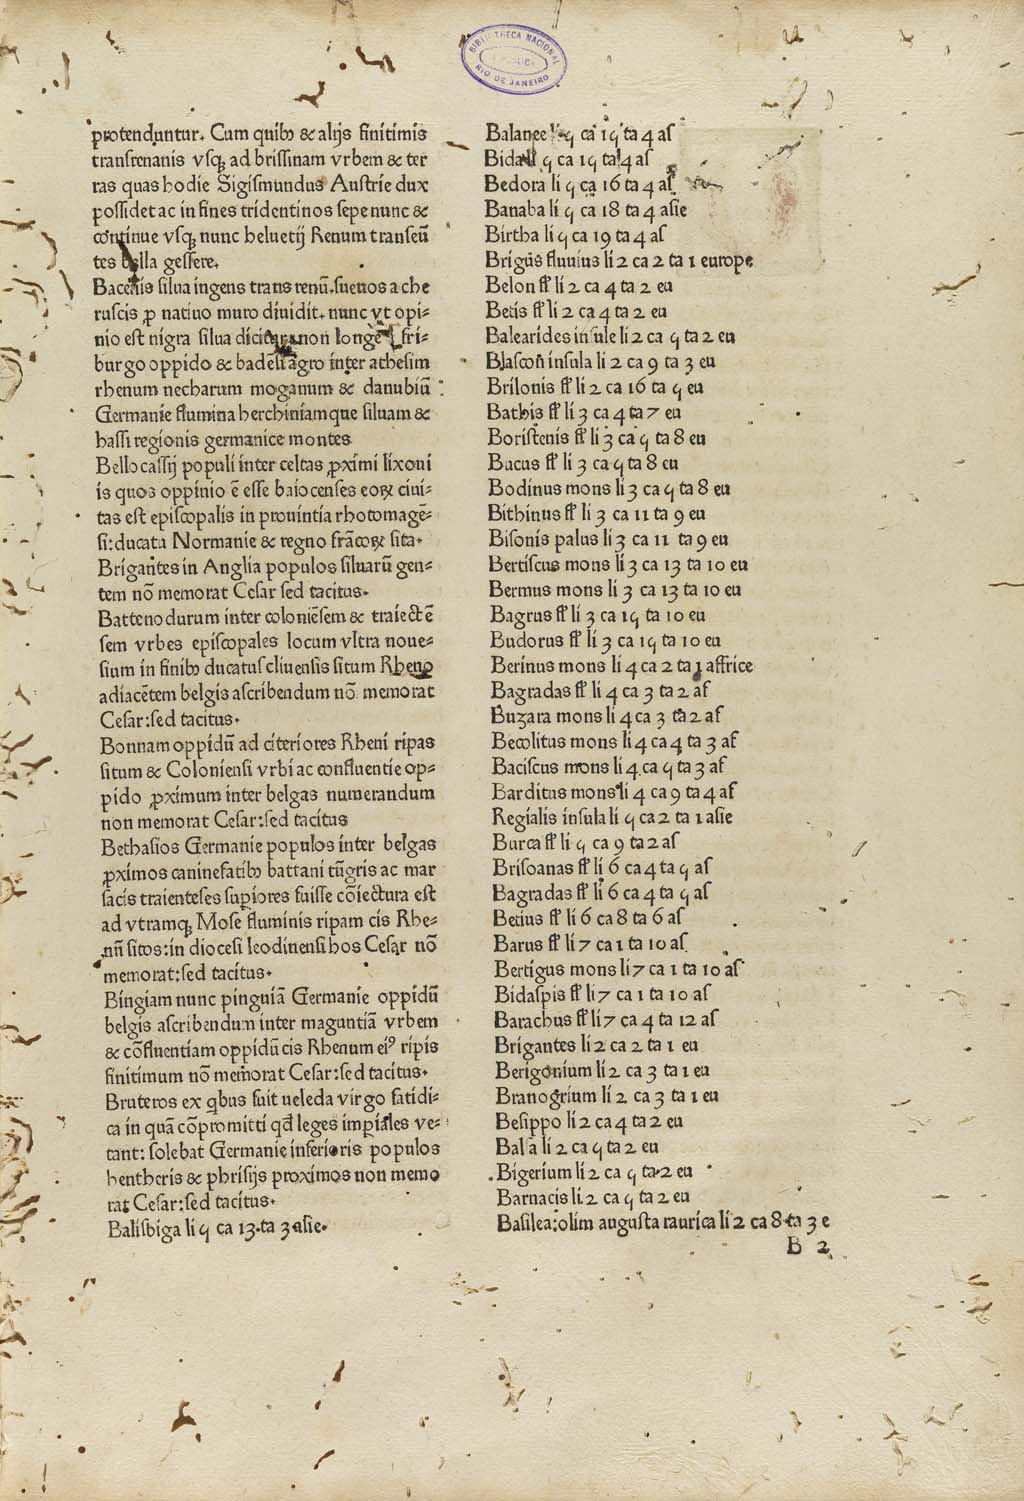 BIBLIOTHECA NACIONAL
RIO DE JANEIRO
protenduntur. Cum quibꝯ & alijs finitimis
transrenanis vsqꝫ ad brissinam vrbem & ter
ras quas hodie Sigismundus Austrie dux
possidet ac in fines tridentinos sepe nunc &
cōntinue vsqꝫ nunc heluetij Renum transeū
tes bella gessere.
Bacenis silua ingens trans renū.sueuos a che
ruscis ꝓ natiuo muro diuidit. nunc vt opi-
nio est nigra silua dicitur non longe fri-
burgo oppido & badesi agro inter athesim
rhenum necharum moganum & danubiū
Germanie flumina herchiniamque siluam &
hassi regionis germanice montes
Bellocassij populi inter celtas ꝓximi lixoui
is quos oppinio ē esse baiocenses eoꝝ ciui-
tas est episcopalis in prouintia rhotomagē-
si: ducatu Normanie & regno frācoꝝ sita.
Brigantes in Anglia populos siluarū gen-
tem nō memorat Cesar sed tacitus.
Battenodurum inter coloniēsem & traiectē
sem vrbes episcopales locum vltra noue-
sium in finibꝯ ducatus cliuensis situm Rheno
adiacētem belgis ascribendum nō memorat
Cesar: sed tacitus.
Bonnam oppidū ad citeriores Rheni ripas
situm & Coloniensi vrbi ac confluentie op-
pido ꝓximum inter belgas numerandum
non memorat Cesar: sed tacitus
Bethasios Germanie populos inter belgas
ꝓximos caninefatibꝯ battani tūgris ac mar
sacis traienteses supiores fuisse cōiectura est
ad vtramqꝫ Mose fluminis ripam cis Rhe-
nū sitos: in diocesi leodinensi hos Cesar nō
memorat: sed tacitus.
Bingiam nunc pinguiā Germanie oppidū
belgis ascribendum inter maguntiā vrbem
& cōfluentiam oppidū cis Rhenum eiꝰ ripis
finitimum nō memorat Cesar: sed tacitus.
Bruteros ex qbus fuit ueleda virgo fatidi-
ca in quā cōpromitti qd leges imꝑiales ve-
tant: solebat Germanie inferioris populos
hentheris & phrisijs proximos non memo
rat Cesar: sed tacitus.
Balisbiga li ς ca 13. ta 3 asie.
Balanee li ς ca 1ς ta 4 as
Bida li ς ca 1ς ta 4 as
Bedora li ς ca 16 ta 4 as
Banaba li ς ca 18 ta 4 asie
Birtha li ς ca 19 ta 4 as
Brigūs fluuius li 2 ca 2 ta 1 europe
Belon fl li 2 ca 4 ta 2 eu
Betis fl li 2 ca 4 ta 2 eu
Balearides insule li 2 ca ς ta 2 eu
Blascoñ insula li 2 ca 9 ta 3 eu
Brilonis fl li 2 ca 16 ta ς eu
Bathis fl li 3 ca 4 ta 7 eu
Boristenis fl li 3 ca ς ta 8 eu
Bacus fl li 3 ca ς ta 8 eu
Bodinus mons li 3 ca ς ta 8 eu
Bithinus fl li 3 ca 11 ta 9 eu
Bisonis palus li 3 ca 11 ta 9 eu
Bertiscus mons li 3 ca 13 ta 10 eu
Bermus mons li 3 ca 13 ta 10 eu
Bagrus fl li 3 ca 1ς ta 10 eu
Budorus fl li 3 ca 1ς ta 10 eu
Berinus mons li 4 ca 2 ta 1 affrice
Bagradas fl li 4 ca 3 ta 2 af
Buzara mons li 4 ca 3 ta 2 af
Becolitus mons li 4 ca 4 ta 3 af
Baciscus mons li 4 ca ς ta 3 af
Barditus mons li 4 ca 9 ta 4 af
Regialis insula li ς ca 2 ta 1 asie
Burca fl li ς ca 9 ta 2 as
Brisoanas fl li 6 ca 4 ta ς as
Bagradas fl li 6 ca 4 ta ς as
Betius fl li 6 ca 8 ta 6 as
Barus fl li 7 ca 1 ta 10 as
Bertigus mons li 7 ca 1 ta 10 as
Bidaspis fl li 7 ca 1 ta 10 as
Barachus fl li 7 ca 4 ta 12 as
Brigantes li 2 ca 2 ta 1 eu
Berigonium li 2 ca 3 ta 1 eu
Branogrium li 2 ca 3 ta 1 eu
Besippo li 2 ca 4 ta 2 eu
Bala li 2 ca ς ta 2 eu
Bigerium li 2 ca ς ta 2 eu
Barnacis li 2 ca ς ta 2 eu
Basilea: olim augusta raurica li 2 ca 8 ta 3 e
B 2